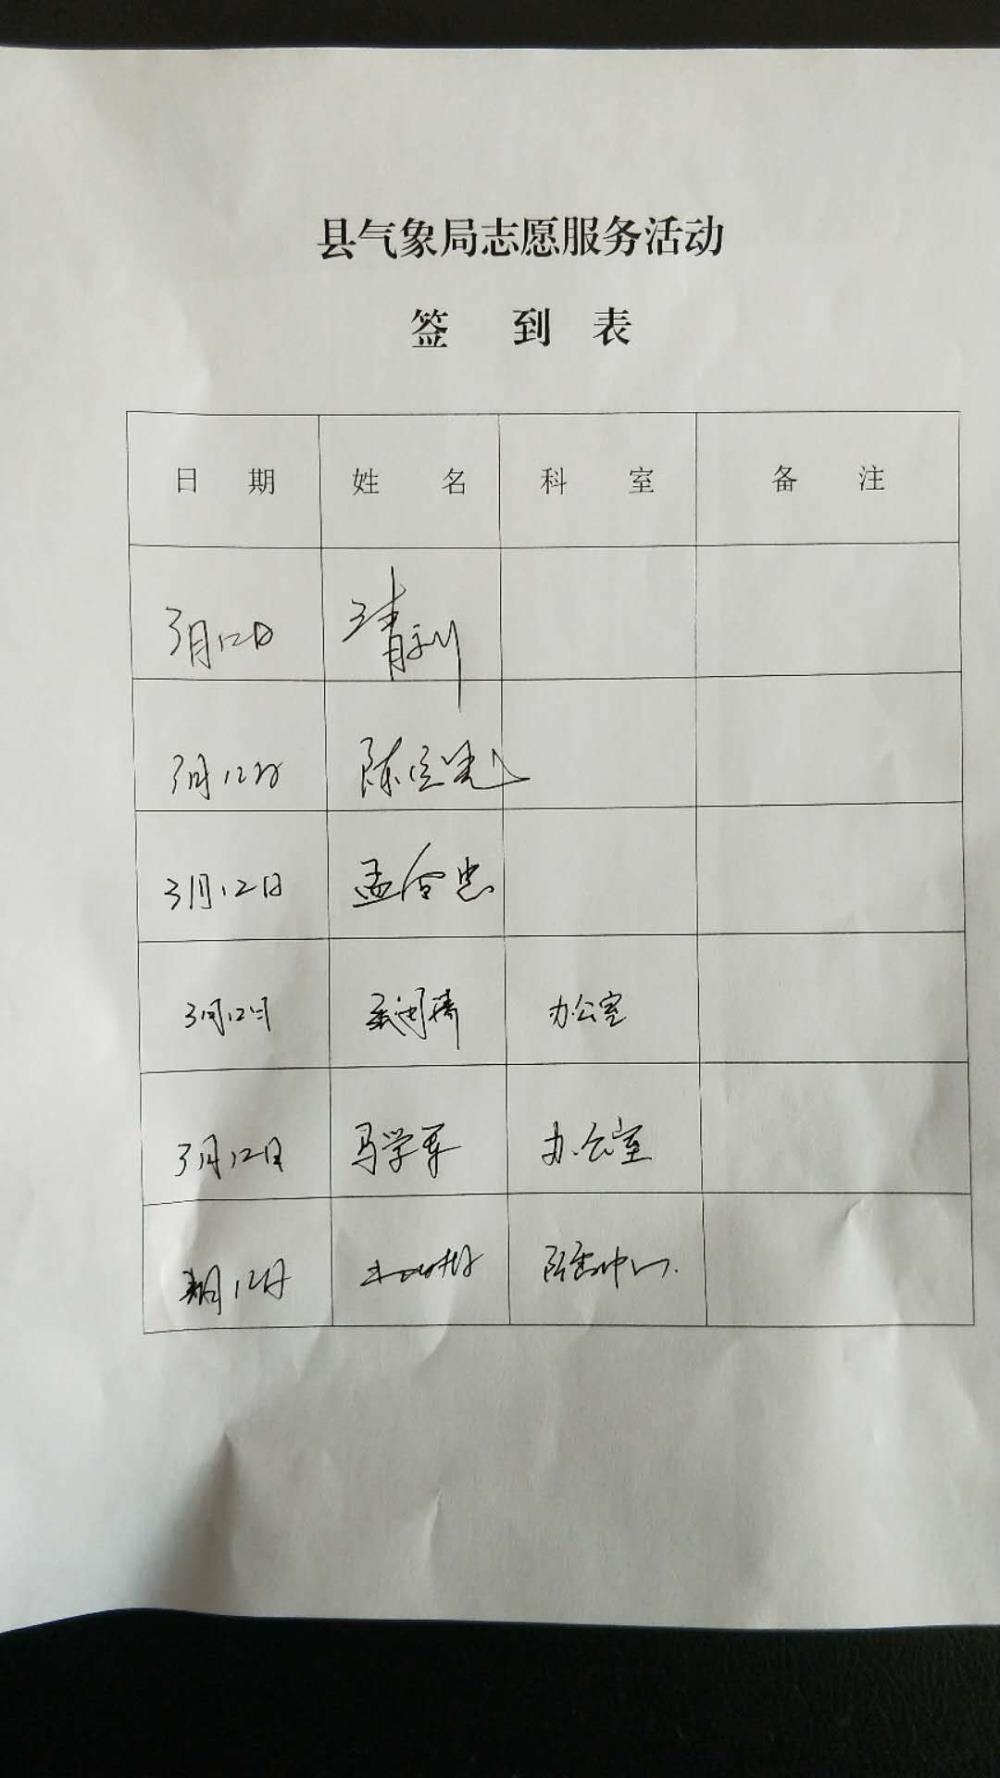 县气象局志愿服务活动
签 到 表
日 期 姓 名 科 室 备 注
3月12日
3月12日
3月12日 孟合忠
3月12日 办公室
3月12日 马学军 办公室
3月12日